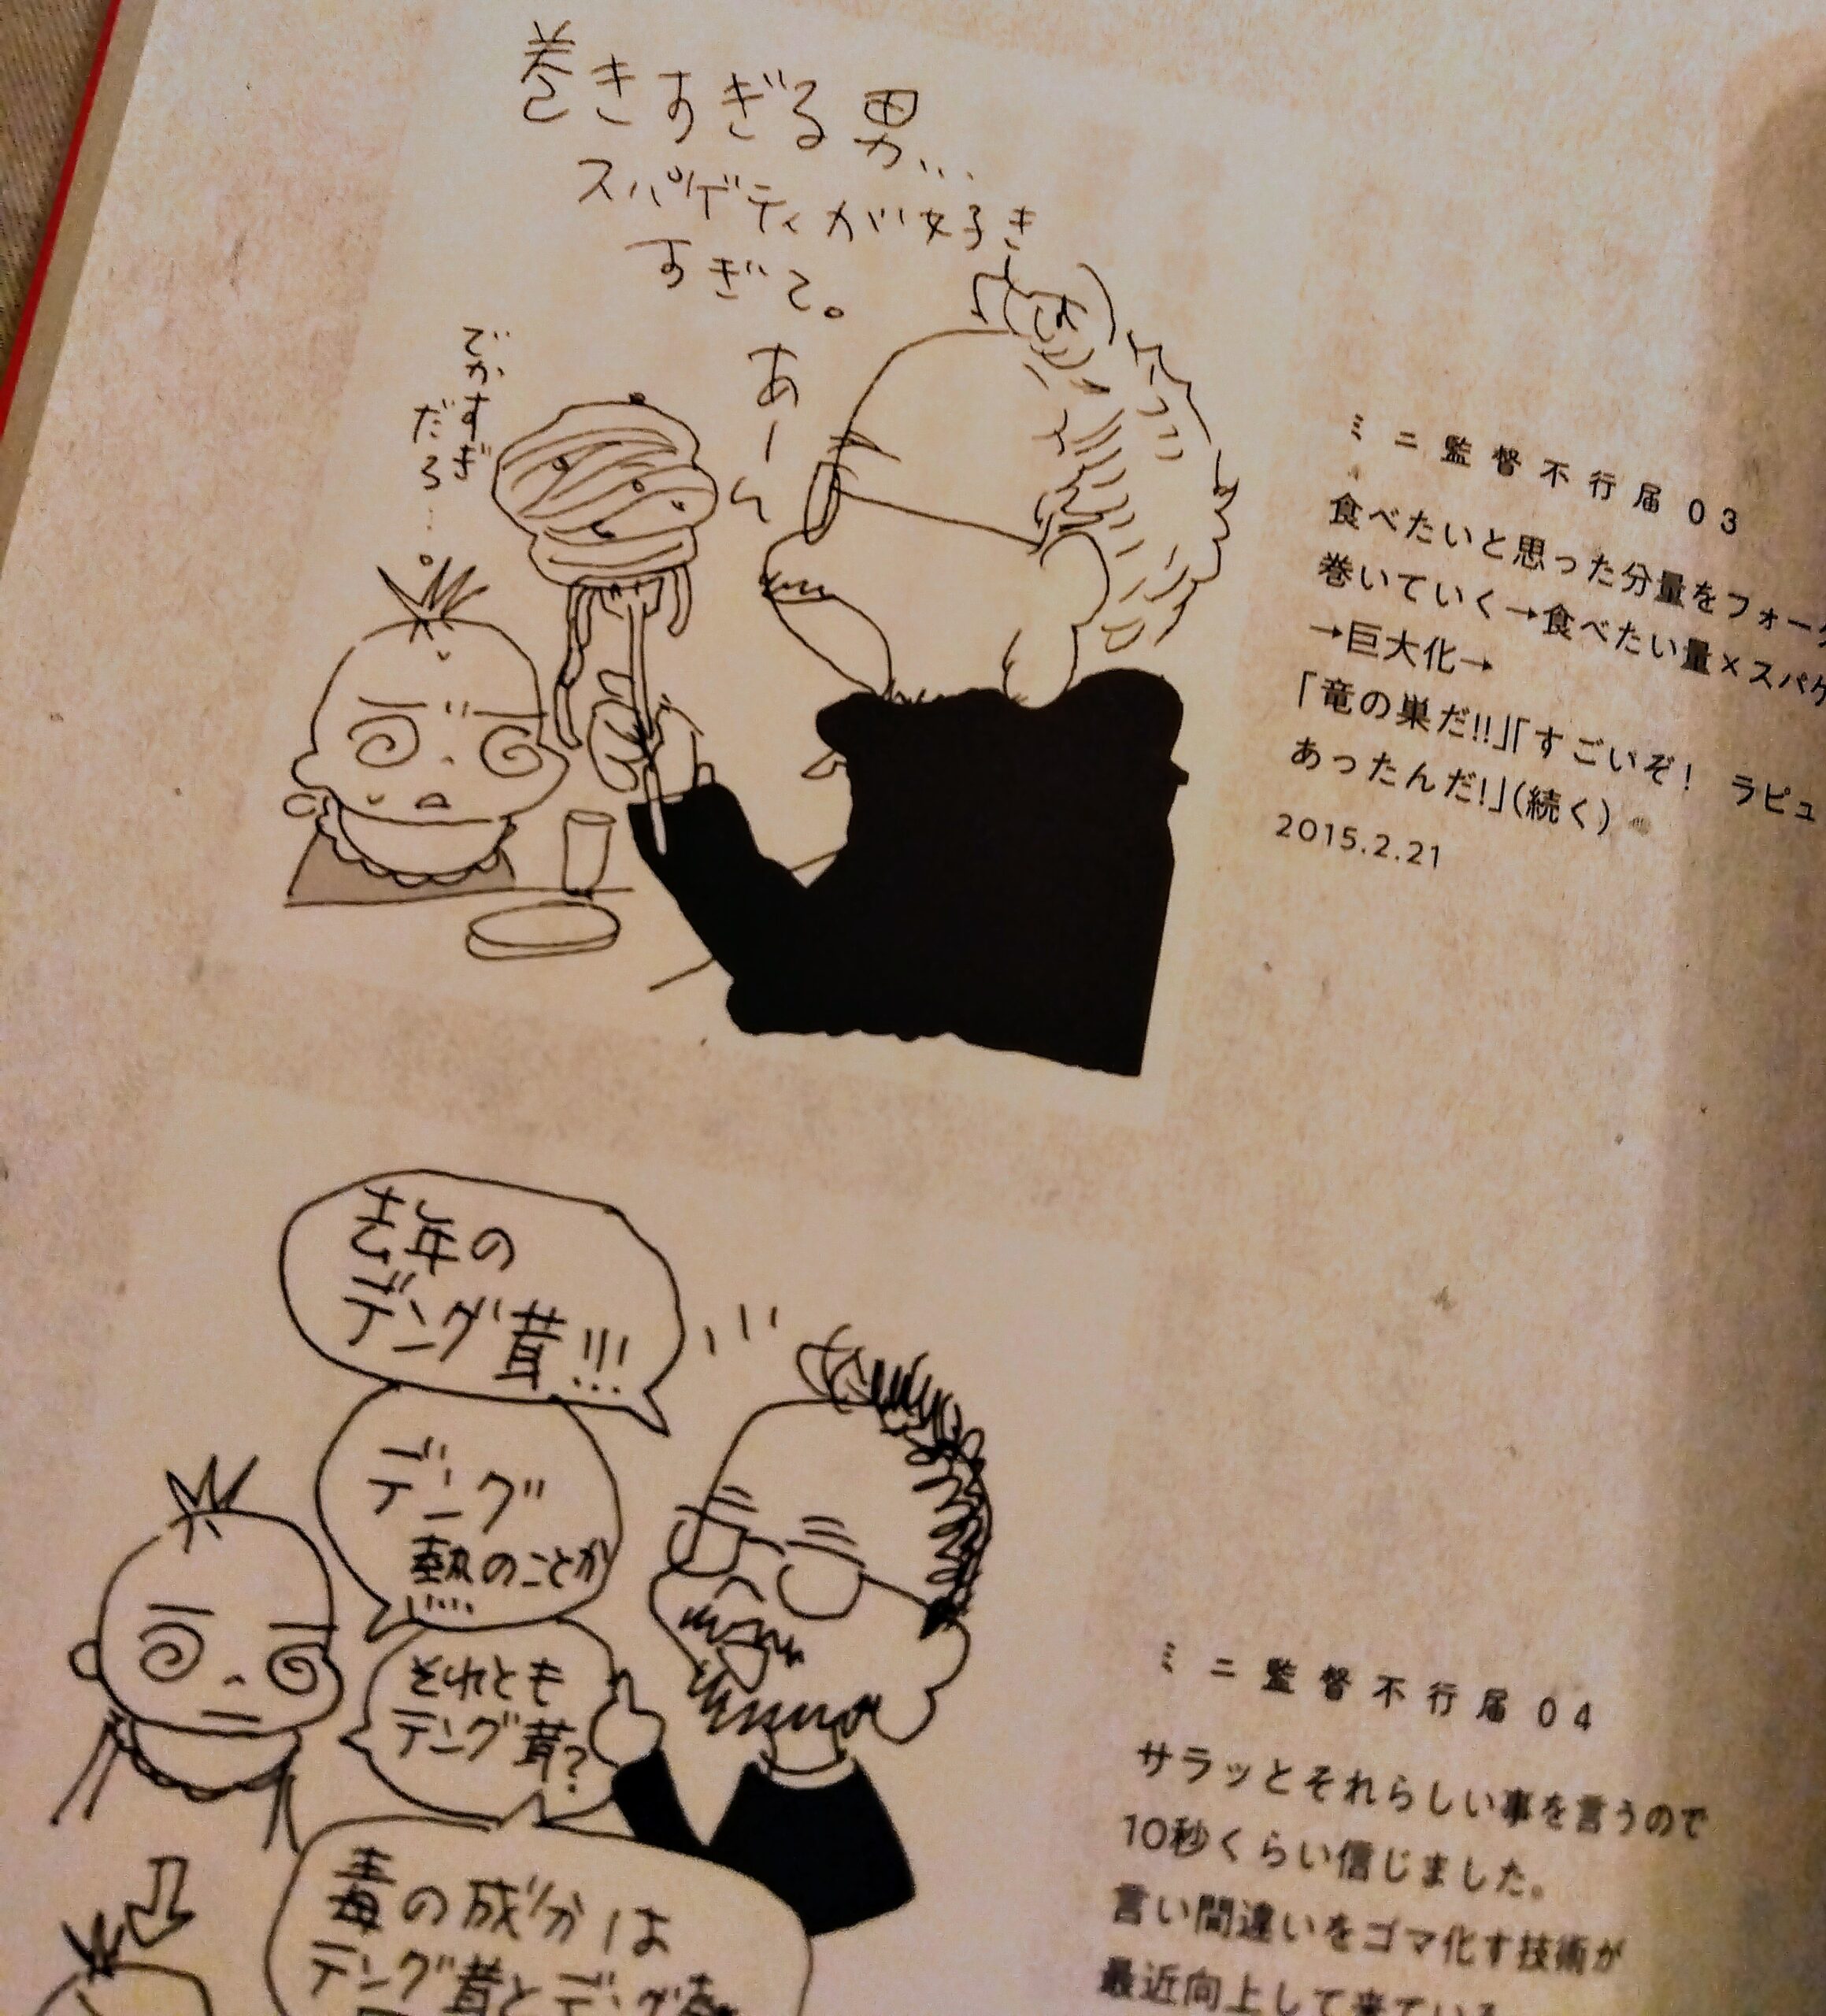 巻きすぎる男...
スパゲティが好き
すぎて。
あーん
でかすぎ
だろ…。
ミニ監督不行届03
食べたいと思った分量をフォー
巻いていく→食べたい量×スパゲ
→巨大化→
「竜の巣だ!!」「すごいぞ！ ラピュ
あったんだ!」(続く)
2015.2.21
去年の
デング茸!!!
デング
熱のことか
!!!!
それとも
テング茸?
毒の成分は
テング茸とデング
ミニ監督不行届04
サラッとそれらしい事を言うので
10秒くらい信じました。
言い間違いをゴマ化す技術が
最近向上して来ている